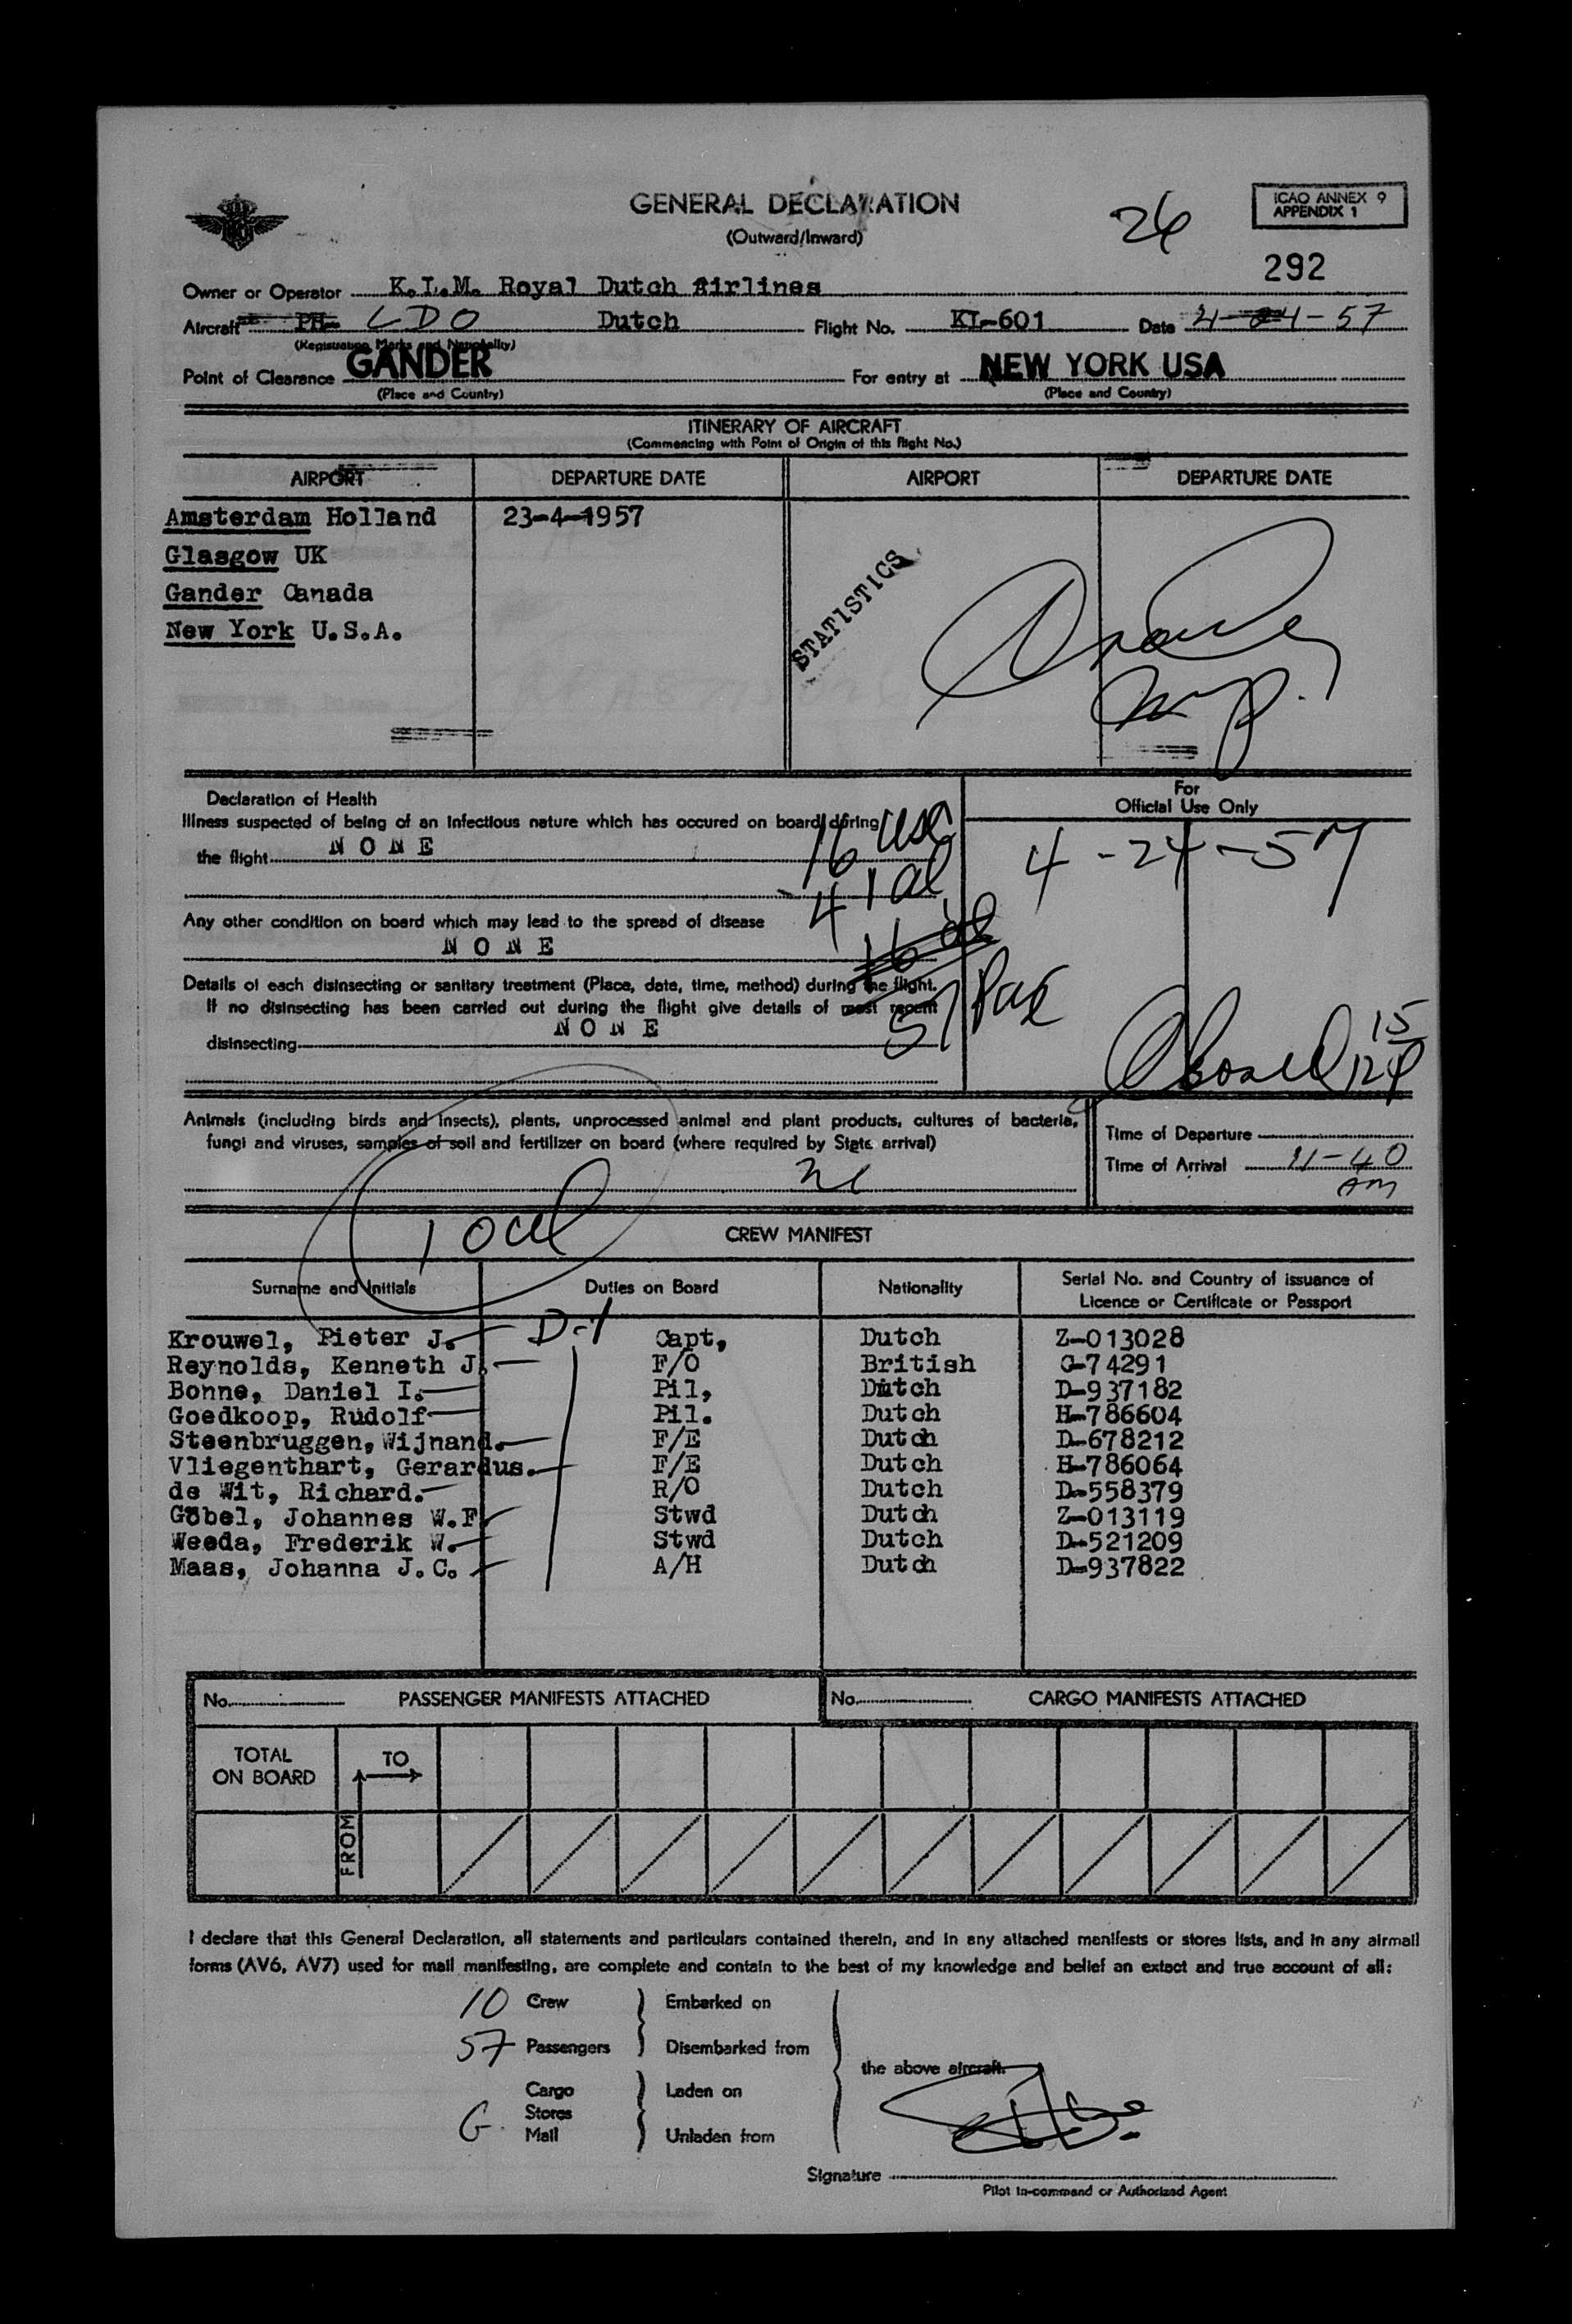 GENERAL DECLARATION
(Outward/Inward)
26
ICAO ANNEX 9
APPENDIX 1
292
Owner or Operator K.L.M. Royal Dutch Airlines
Aircraft PH- LDO Dutch Flight No. KL-601 Date 57
(Registration Marks and Nationality)
Point of Clearance GANDER For entry at NEW YORK USA
(Place and Country) (Place and Country)
ITINERARY OF AIRCRAFT
(Commencing with Point of Origin of this flight No.)
AIRPORT DEPARTURE DATE AIRPORT DEPARTURE DATE
Amsterdam Holland 23-4-1957
Glasgow UK
Gander Canada
New York U.S.A.
STATISTICS
Declaration of Health
Illness suspected of being of an infectious nature which has occured on board during
the flight NONE
16 usc
41 al
Any other condition on board which may lead to the spread of disease
NONE
16 al
Details of each disinsecting or sanitary treatment (Place, date, time, method) during the flight.
If no disinsecting has been carried out during the flight give details of most recent
disinsecting NONE
57
For
Official Use Only
4-24-57
Animals (including birds and insects), plants, unprocessed animal and plant products, cultures of bacteria,
fungi and viruses, samples of soil and fertilizer on board (where required by State arrival)
Time of Departure
Time of Arrival 11-40
AM
CREW MANIFEST
Surname and Initials Duties on Board Nationality Serial No. and Country of issuance of
Licence or Certificate or Passport
D-1
Krouwel, Pieter J. Capt, Dutch Z-013028
Reynolds, Kenneth J. F/O British C-74291
Bonne, Daniel I. Pil, Dutch D-937182
Goedkoop, Rudolf Pil. Dutch H-786604
Steenbruggen, Wijnand. F/E Dutch D-678212
Vliegenthart, Gerardus. F/E Dutch H-786064
de Wit, Richard. R/O Dutch D-558379
Göbel, Johannes W.F. Stwd Dutch Z-013119
Weeda, Frederik W. Stwd Dutch D-521209
Maas, Johanna J.C. A/H Dutch D-937822
No. PASSENGER MANIFESTS ATTACHED No. CARGO MANIFESTS ATTACHED
TOTAL
ON BOARD
TO
FROM
I declare that this General Declaration, all statements and particulars contained therein, and in any attached manifests or stores lists, and in any airmail
forms (AV6, AV7) used for mail manifesting, are complete and contain to the best of my knowledge and belief an extact and true account of all:
10 Crew Embarked on
57 Passengers Disembarked from
the above aircraft.
Cargo Laden on
Stores
G. Mail Unladen from
Signature
Pilot in-command or Authorized Agent